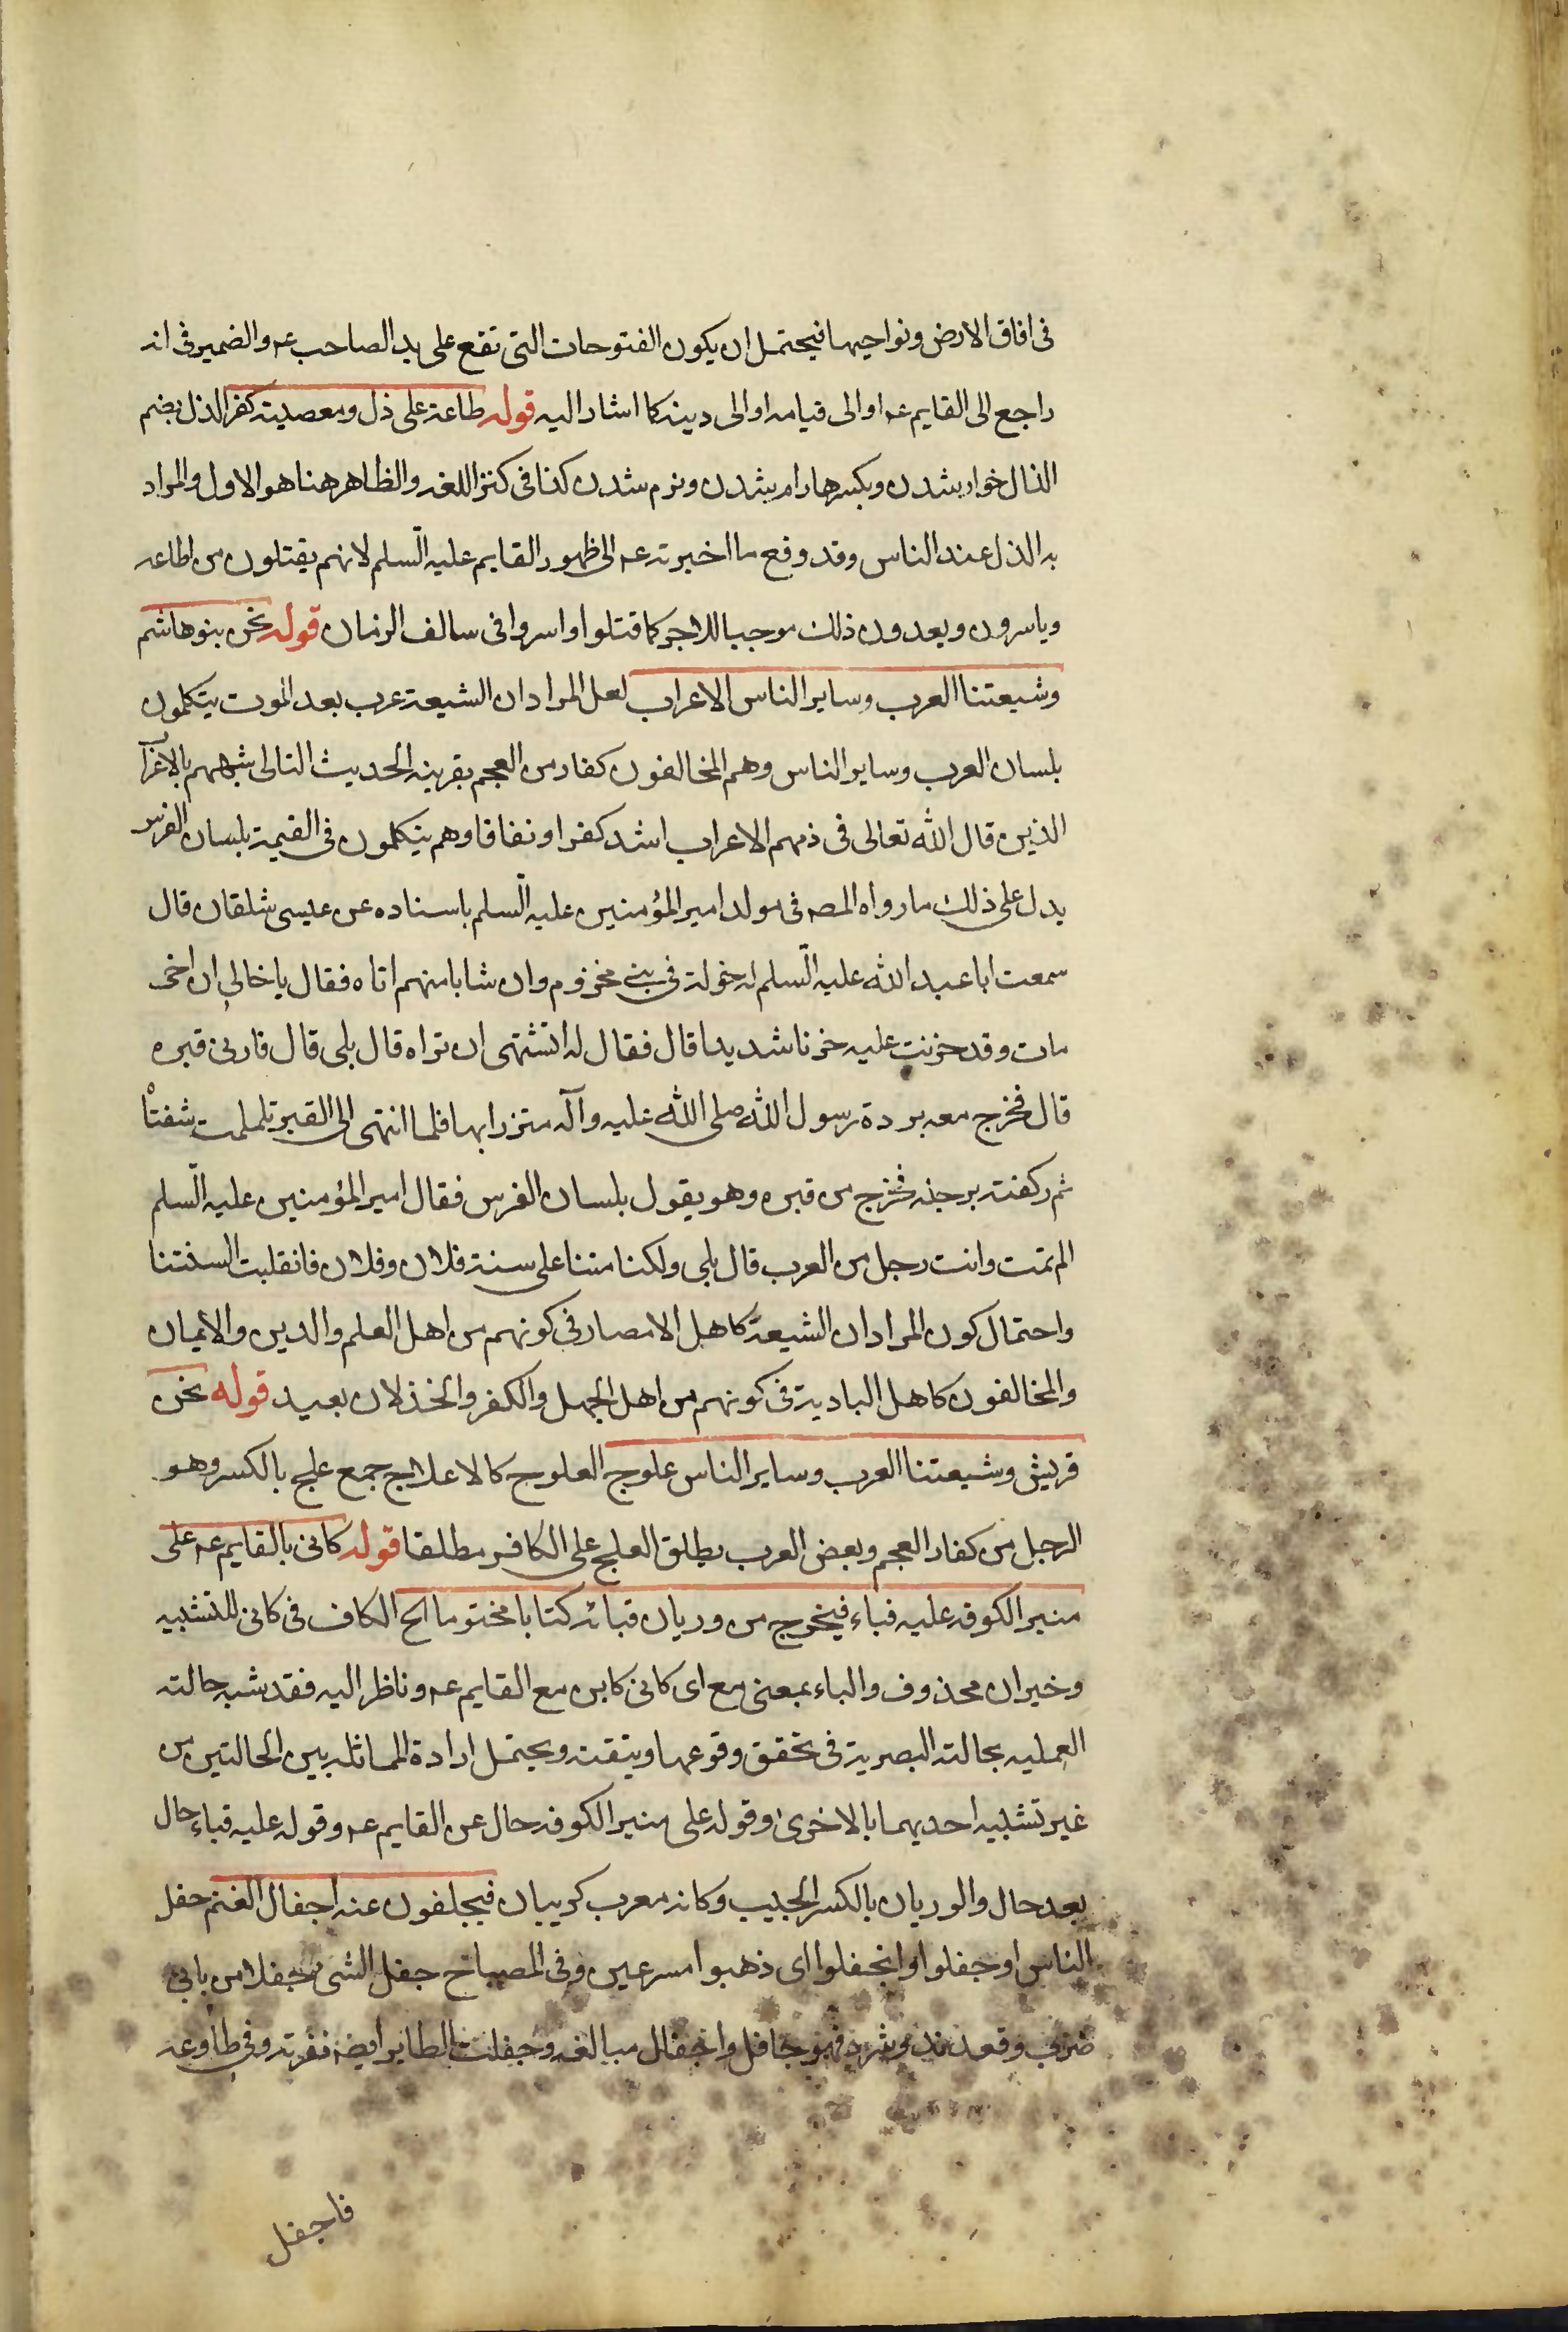 فى افاق الارض ونواحيها فيحتمل ان يكون الفتوحات التى تقع على يد الصاحب عـ والضمير فى انه
راجع الى القايم عـ او الى قيامه او الى دينه كما اشار اليه قوله طاعة على ذل ومعصيته كفر الذل بضم
الذال خوار شدن وبكسرها رام شدن ونرم شدن كذا فى كنز اللغه والظاهر هنا هو الاول والمراد
به الذل عند الناس وقد وقع ما اخبر به عـ الى ظهور القايم عليه السلم لانهم يقتلون من اطاعه
وياسرون ويعدون ذلك موجبا للاجر كما قتلوا واسروا فى سالف الزمان قوله نحن بنو هاشم
وشيعتنا العرب وساير الناس الاعراب لعل المراد ان الشيعة عرب بعد الموت يتكلمون
بلسان العرب وساير الناس وهم المخالفون كفار من العجم بقرينه الحديث التالى شبههم بالاعراب
الذين قال الله تعالى فى ذمهم الاعراب اشد كفرا ونفاقا وهم يتكلمون فى القيمة بلسان الفرس
يدل على ذلك ما رواه المصـ فى مولد امير المؤمنين عليه السلم باسناده عن عيسى شلقان قال
سمعت ابا عبد الله عليه السلم له خؤلة فى بنى مخزوم وان شابا منهم اتاه فقال يا خالى ان اخى
مات وقد حزنت عليه حزنا شديدا قال فقال له اتشتهى ان تراه قال بلى قال فارنى قبره
قال فخرج معه بردة رسول الله صلى الله عليه وآله متزرا بها فلما انتهى الى القبر تلملمت شفتاه
ثم ركضه برجله فخرج من قبره وهو يقول بلسان الفرس فقال امير المؤمنين عليه السلم
الم تمت وانت رجل من العرب قال بلى ولكنا متنا على سنة فلان وفلان فانقلبت السنتنا
واحتمال كون المراد ان الشيعة كاهل الامصار فى كونهم من اهل العلم والدين والايمان
والمخالفون كاهل البادية فى كونهم من اهل الجهل والكفر والخذلان بعيد قوله نحن
قريش وشيعتنا العرب وساير الناس علوج العلوج كالاعلاج جمع علج بالكسر وهو
الرجل من كفار العجم وبعض العرب يطلق العلج على الكافر مطلقا قوله كانى بالقايم عـ على
منبر الكوفه عليه قباء فيخرج من وريان قبائه كتابا مختوما الخ الكاف فى كانى للتشبيه
وخبر ان محذوف والباء بمعنى مع اى كانى كاين مع القايم عـ وناظر اليه فقد شبه حالته
العلميه بحالته البصرية فى تحقق وقوعها وتيقنه ويحتمل ارادة المماثله بين الحالتين من
غير تشبيه احديهما بالاخرى وقوله على منبر الكوفه حال عن القايم عـ وقوله عليه قباء حال
بعد حال والوريان بالكسر الجيب وكانه معرب كريبان فيجلفون عنه اجفال الغنم جفل
الناس او جفلوا وانجفلوا اى ذهبوا مسرعين وفى المصباح جفل الشى جفلا من بابى
ضرب وقعد ند وشرد فهو جافل واجفال مبالغه وجفلت الطاير ايضا نفرته وفى مطاوعه
فاجفل